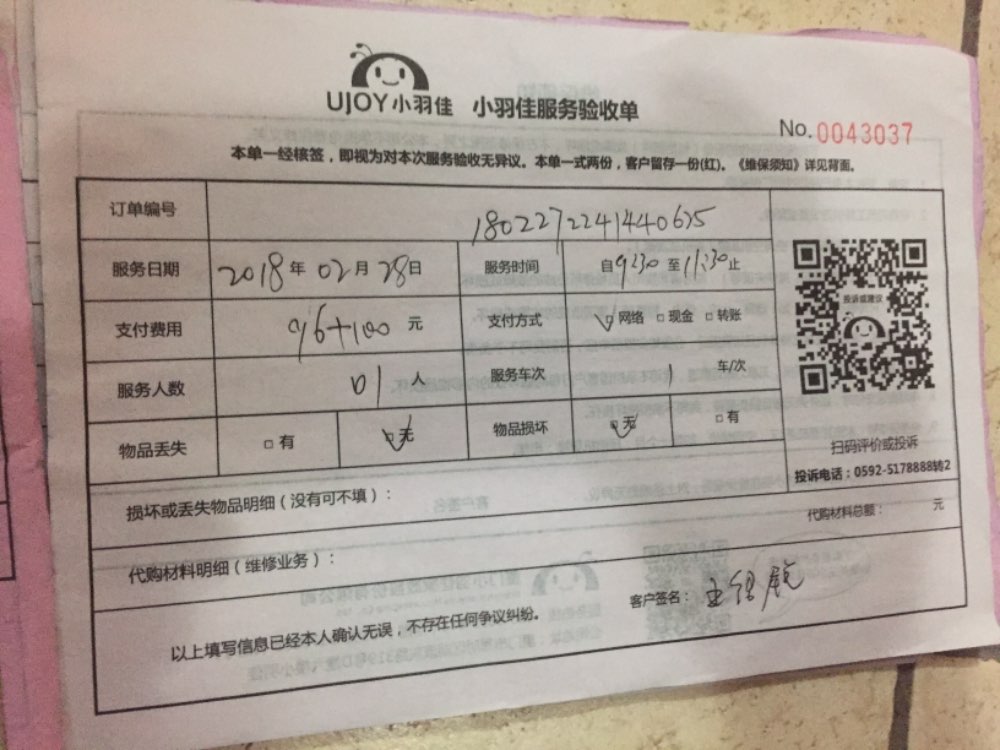 UJOY小羽佳 小羽佳服务验收单
No. 0043037
本单一经核签，即视为对本次服务验收无异议。本单一式两份，客户留存一份(红)。《维保须知》详见背面。
订单编号 1802272241440625
服务日期 2018年02月28日 服务时间 自9:30至11:30止
支付费用 96+100元 支付方式 ☑网络 □现金 □转账
服务人数 01人 服务车次 1 车/次
物品丢失 □有 ☑无 物品损坏 ☑无 □有
投诉或建议
扫码评价或投诉
投诉电话：0592-5178888转2
损坏或丢失物品明细（没有可不填）：
代购材料总额： 元
代购材料明细（维修业务）：
客户签名：
以上填写信息已经本人确认无误，不存在任何争议纠纷。